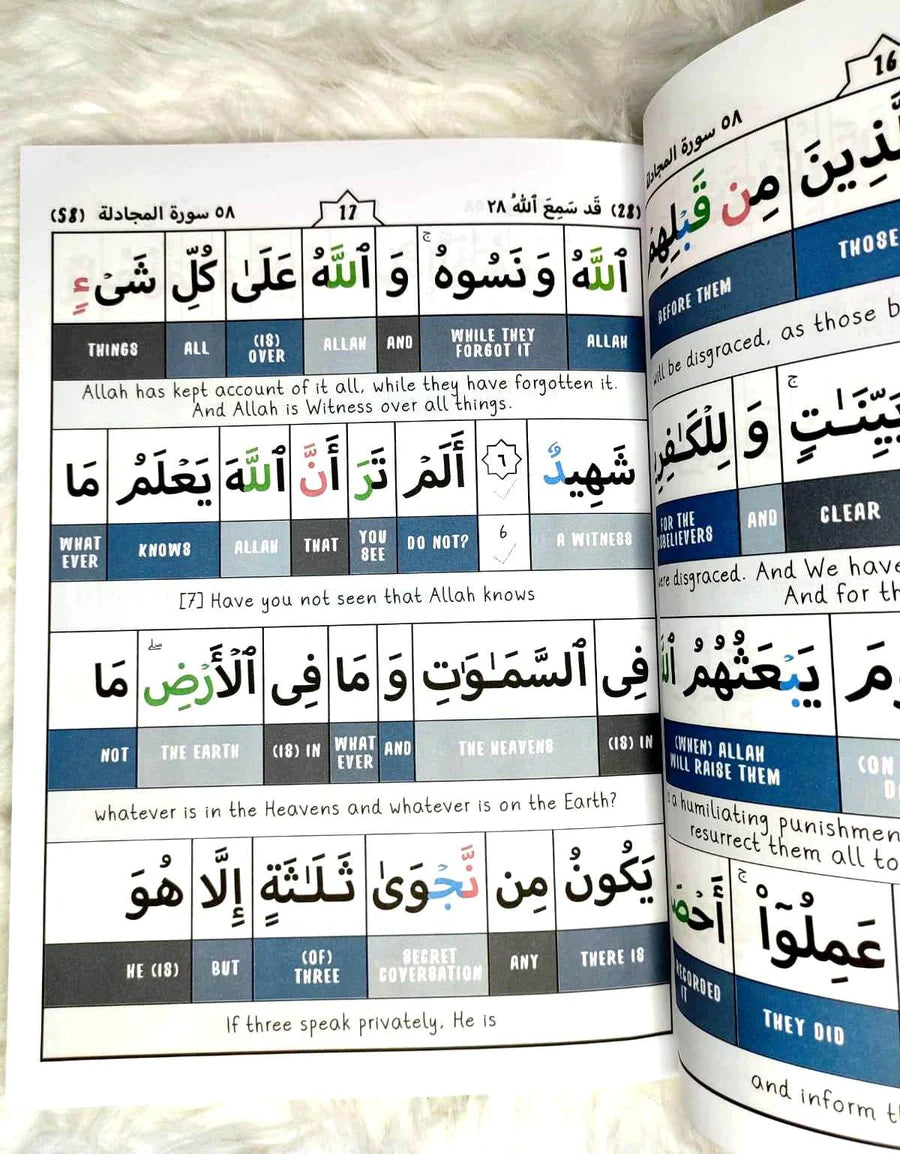 16
٥٨ سورة المجادلة
مِن قَبۡلِهِمۡ
BEFORE THEM THOSE
be disgraced, as those
بَيِّنَـٰتٍ ۚ وَ لِلۡكَـٰفِرِينَ
FOR THE DISBELIEVERS AND CLEAR
were disgraced. And We have
And for
يَبۡعَثُهُمُ
(WHEN) ALLAH WILL RAISE THEM (ON
a humiliating punishment
resurrect them all to
عَمِلُوٓا۟ ۚ أَحۡصَ
RECORDED IT THEY DID
and inform
(28) قَد سَمِعَ ٱللَّهُ ٢٨
17
٥٨ سورة المجادلة (58)
ٱللَّهُ وَ نَسُوهُ ۚ وَ ٱللَّهُ عَلَىٰ كُلِّ شَىۡءٍ
THINGS ALL (IS) OVER ALLAH AND WHILE THEY FORGOT IT ALLAH
Allah has kept account of it all, while they have forgotten it.
And Allah is Witness over all things.
شَهِيدٌ ٦ أَلَمۡ تَرَ أَنَّ ٱللَّهَ يَعۡلَمُ مَا
WHAT EVER KNOWS ALLAH THAT YOU SEE DO NOT? 6 A WITNESS
[7] Have you not seen that Allah knows
فِى ٱلسَّمَـٰوَٰتِ وَ مَا فِى ٱلۡأَرۡضِ ۖ مَا
NOT THE EARTH (IS) IN WHAT EVER AND THE HEAVENS (IS) IN
whatever is in the Heavens and whatever is on the Earth?
يَكُونُ مِن نَّجۡوَىٰ ثَلَـٰثَةٍ إِلَّا هُوَ
HE (IS) BUT (OF) THREE SECRET COVERSATION ANY THERE IS
If three speak privately, He is